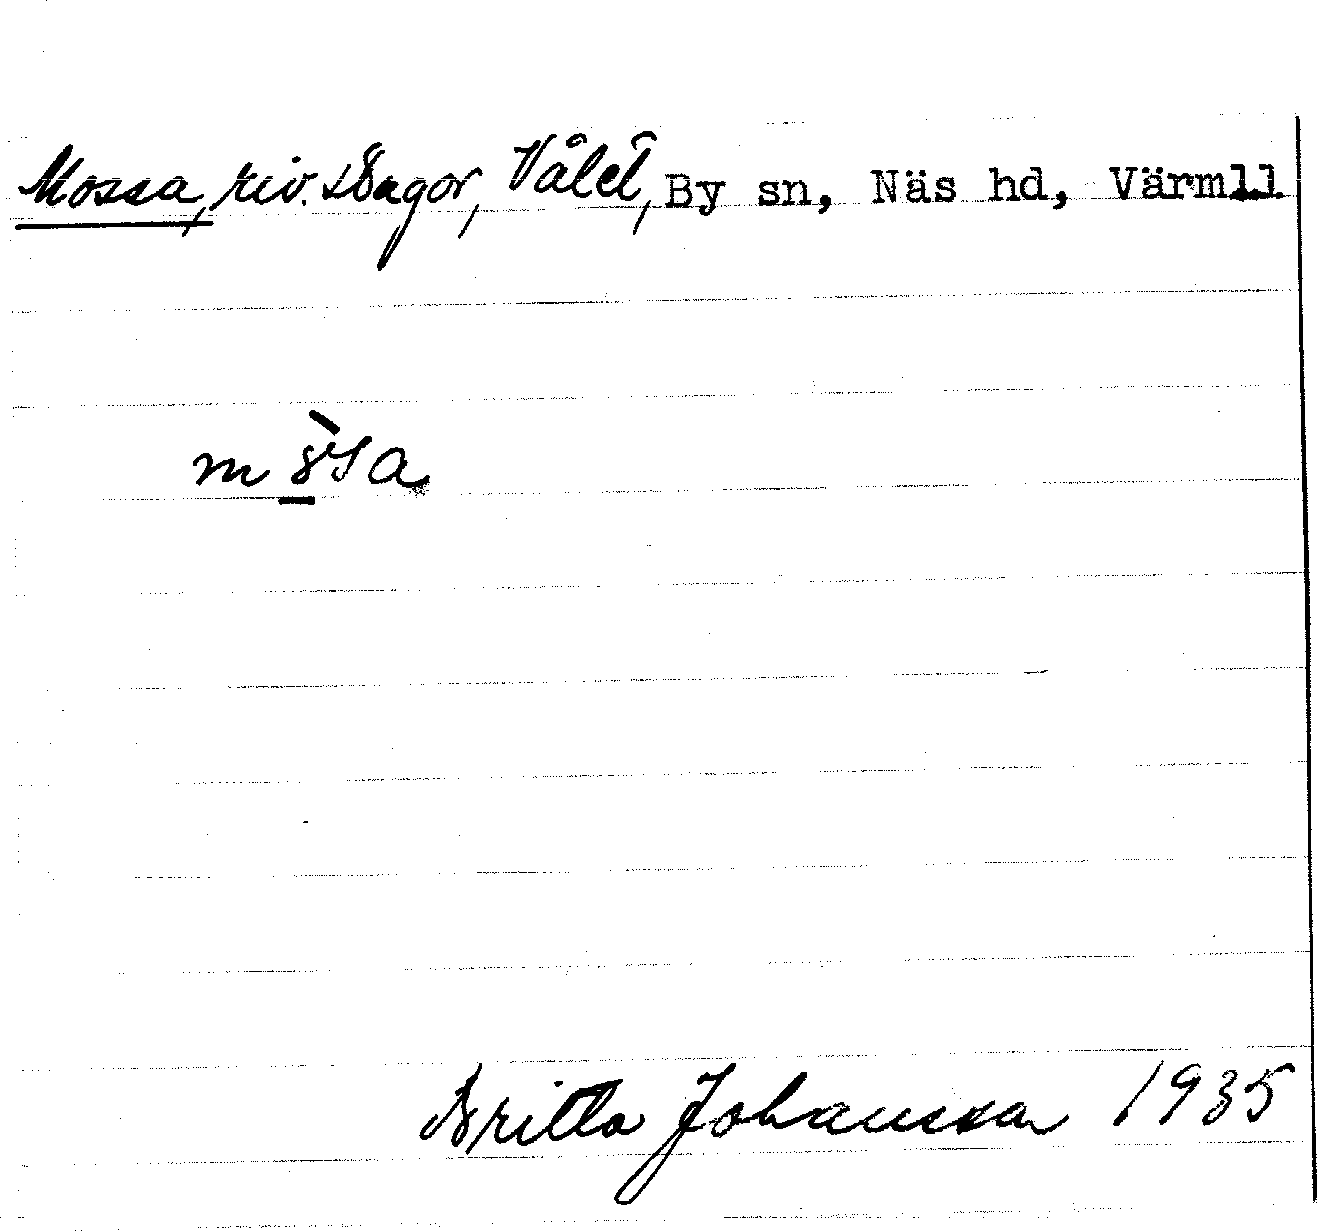 Mossa, riv. stugor, Vålet, By sn, Näs hd, Värml
Britta Johansson 1935